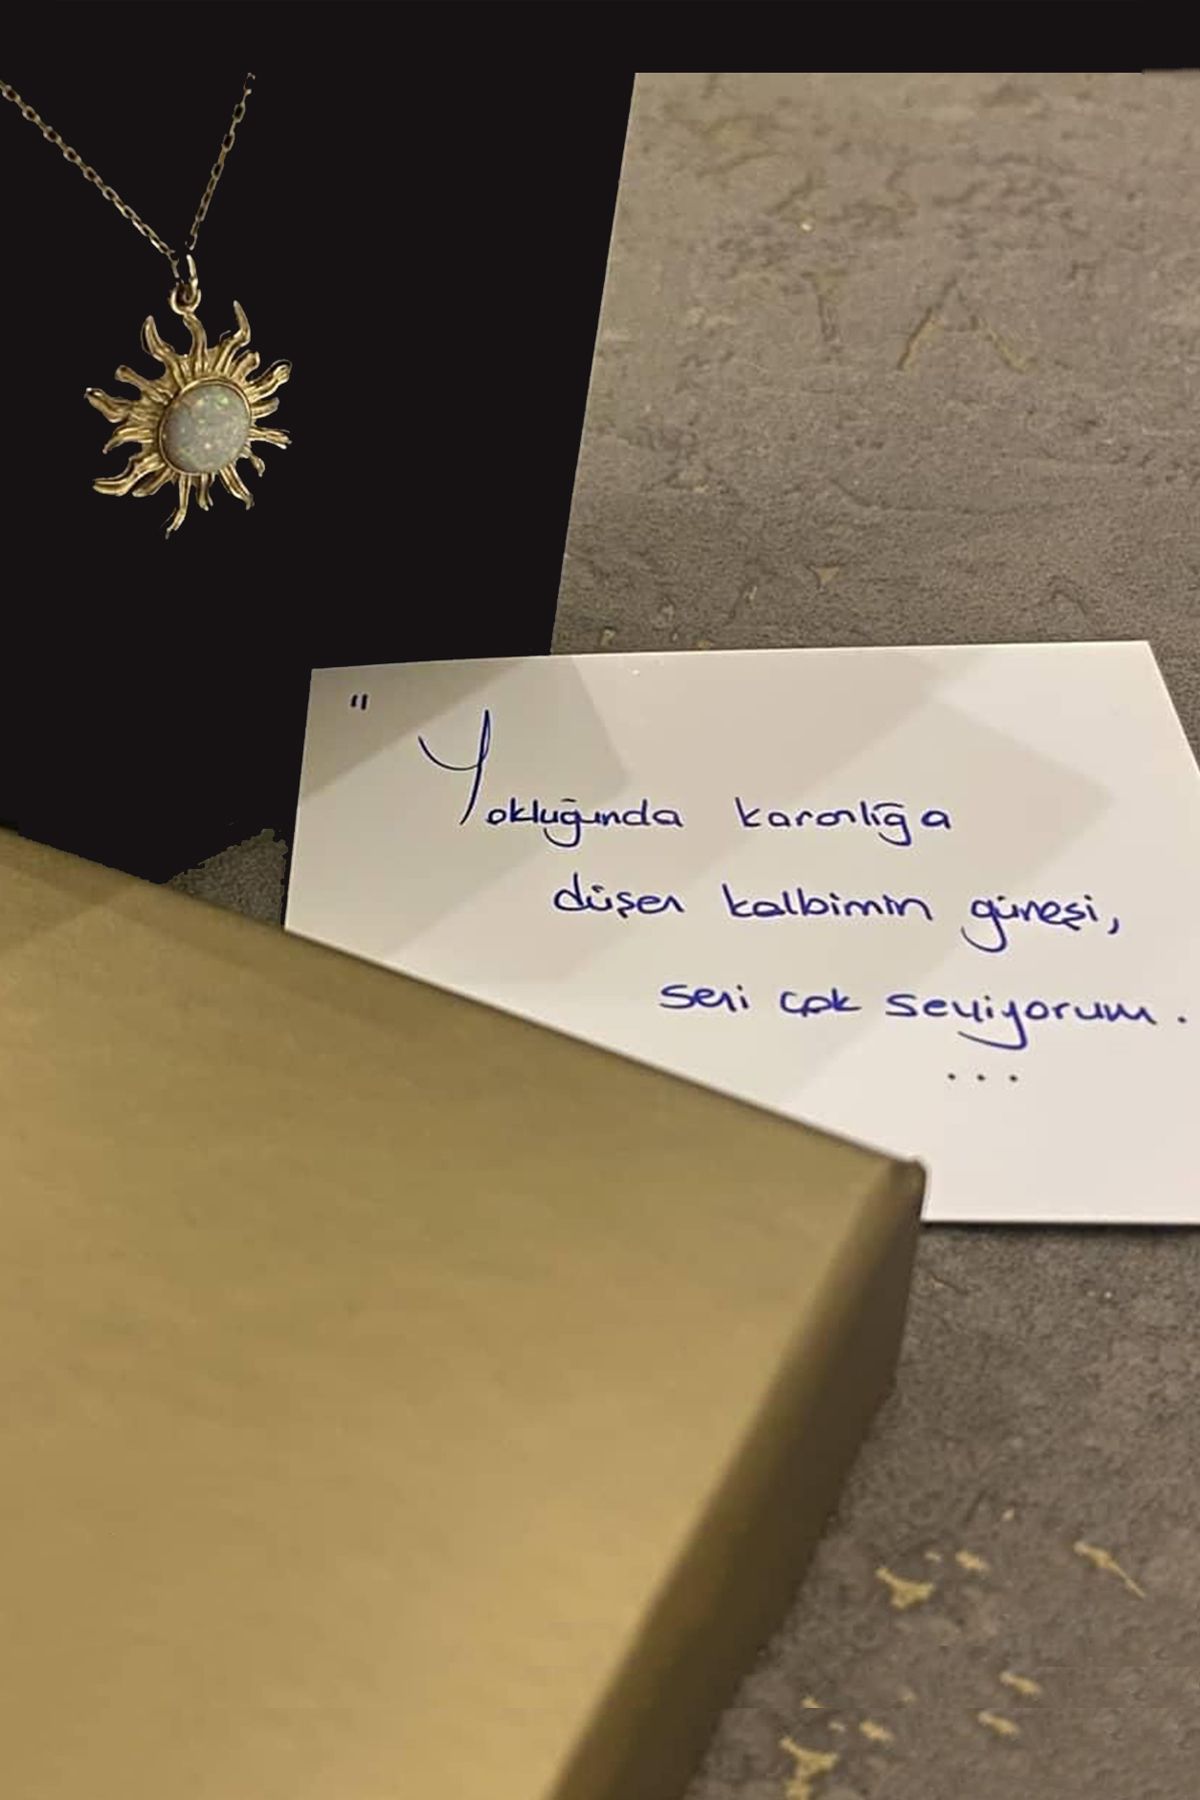 " Yokluğunda karanlığa
düşen kalbimin güneşi,
seni çok seviyorum.
...